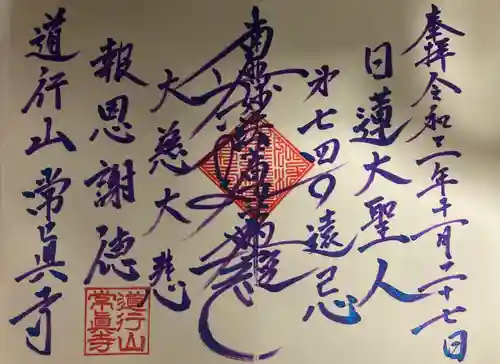 奉拝 令和二年十一月二十七日
日蓮大聖人
第七四〇遠忌
南無妙法蓮華経
大慈大悲
報恩謝徳
道行山 常眞寺
道行山
常眞寺